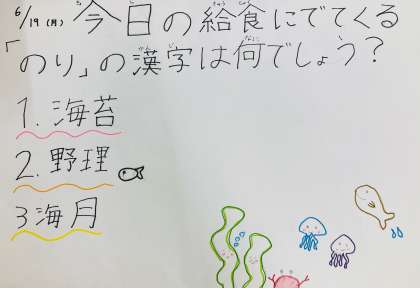 6/19(月) 今日の給食にでてくる
「のり」の漢字は何でしょう?
1. 海苔
2. 野理
3 海月